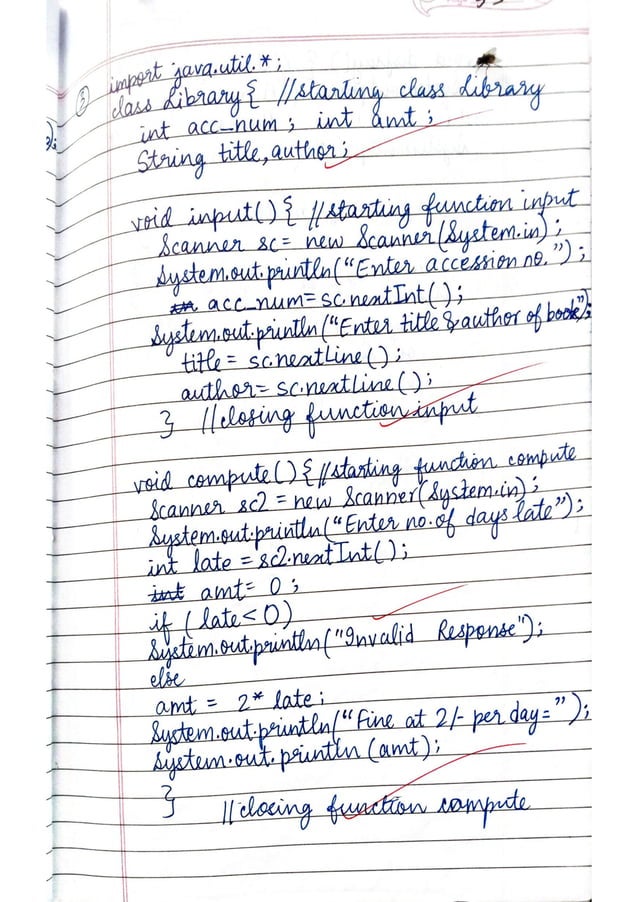 ③ import java.util.*;
class Library{ //starting class Library
int acc_num; int amt;
String title,author;
void input(){ //starting function input
Scanner sc= new Scanner(System.in);
System.out.println("Enter accession no.");
acc_num=sc.nextInt();
System.out.println("Enter title & author of book");
title= sc.nextLine();
author= sc.nextLine();
} //closing function input
void compute(){ //starting function compute
Scanner sc2 = new Scanner(System.in);
System.out.println("Enter no. of days late");
int late = sc2.nextInt();
int amt= 0;
if (late<0)
System.out.println("Invalid Response");
else
amt = 2* late;
System.out.println("Fine at 2/- per day=");
System.out.println(amt);
} //closing function compute